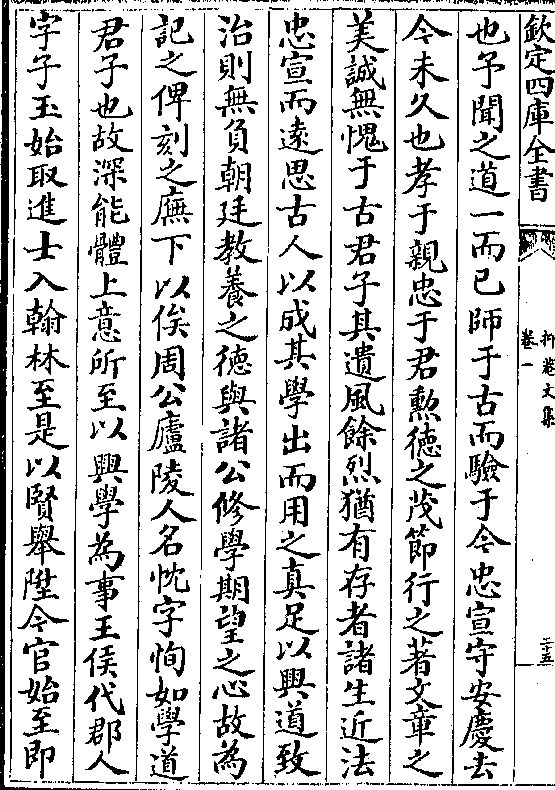 欽定四庫全書
抑菴文集
卷一
二十五
也予聞之道一而已師于古而驗于今忠宣守安慶去
今未久也孝于親忠于君勲德之茂節行之著文章之
美誠無愧于古君子其遺風餘烈猶有存者諸生近法
忠宣而遠思古人以成其學出而用之真足以興道致
治則無負朝廷教養之徳與諸公修學期望之心故為
記之俾刻之廡下以俟周公廬陵人名忱字恂如學道
君子也故深能體上意所至以興學為事王侯代郡人
字子玉始取進士入翰林至是以賢舉陞今官始至即